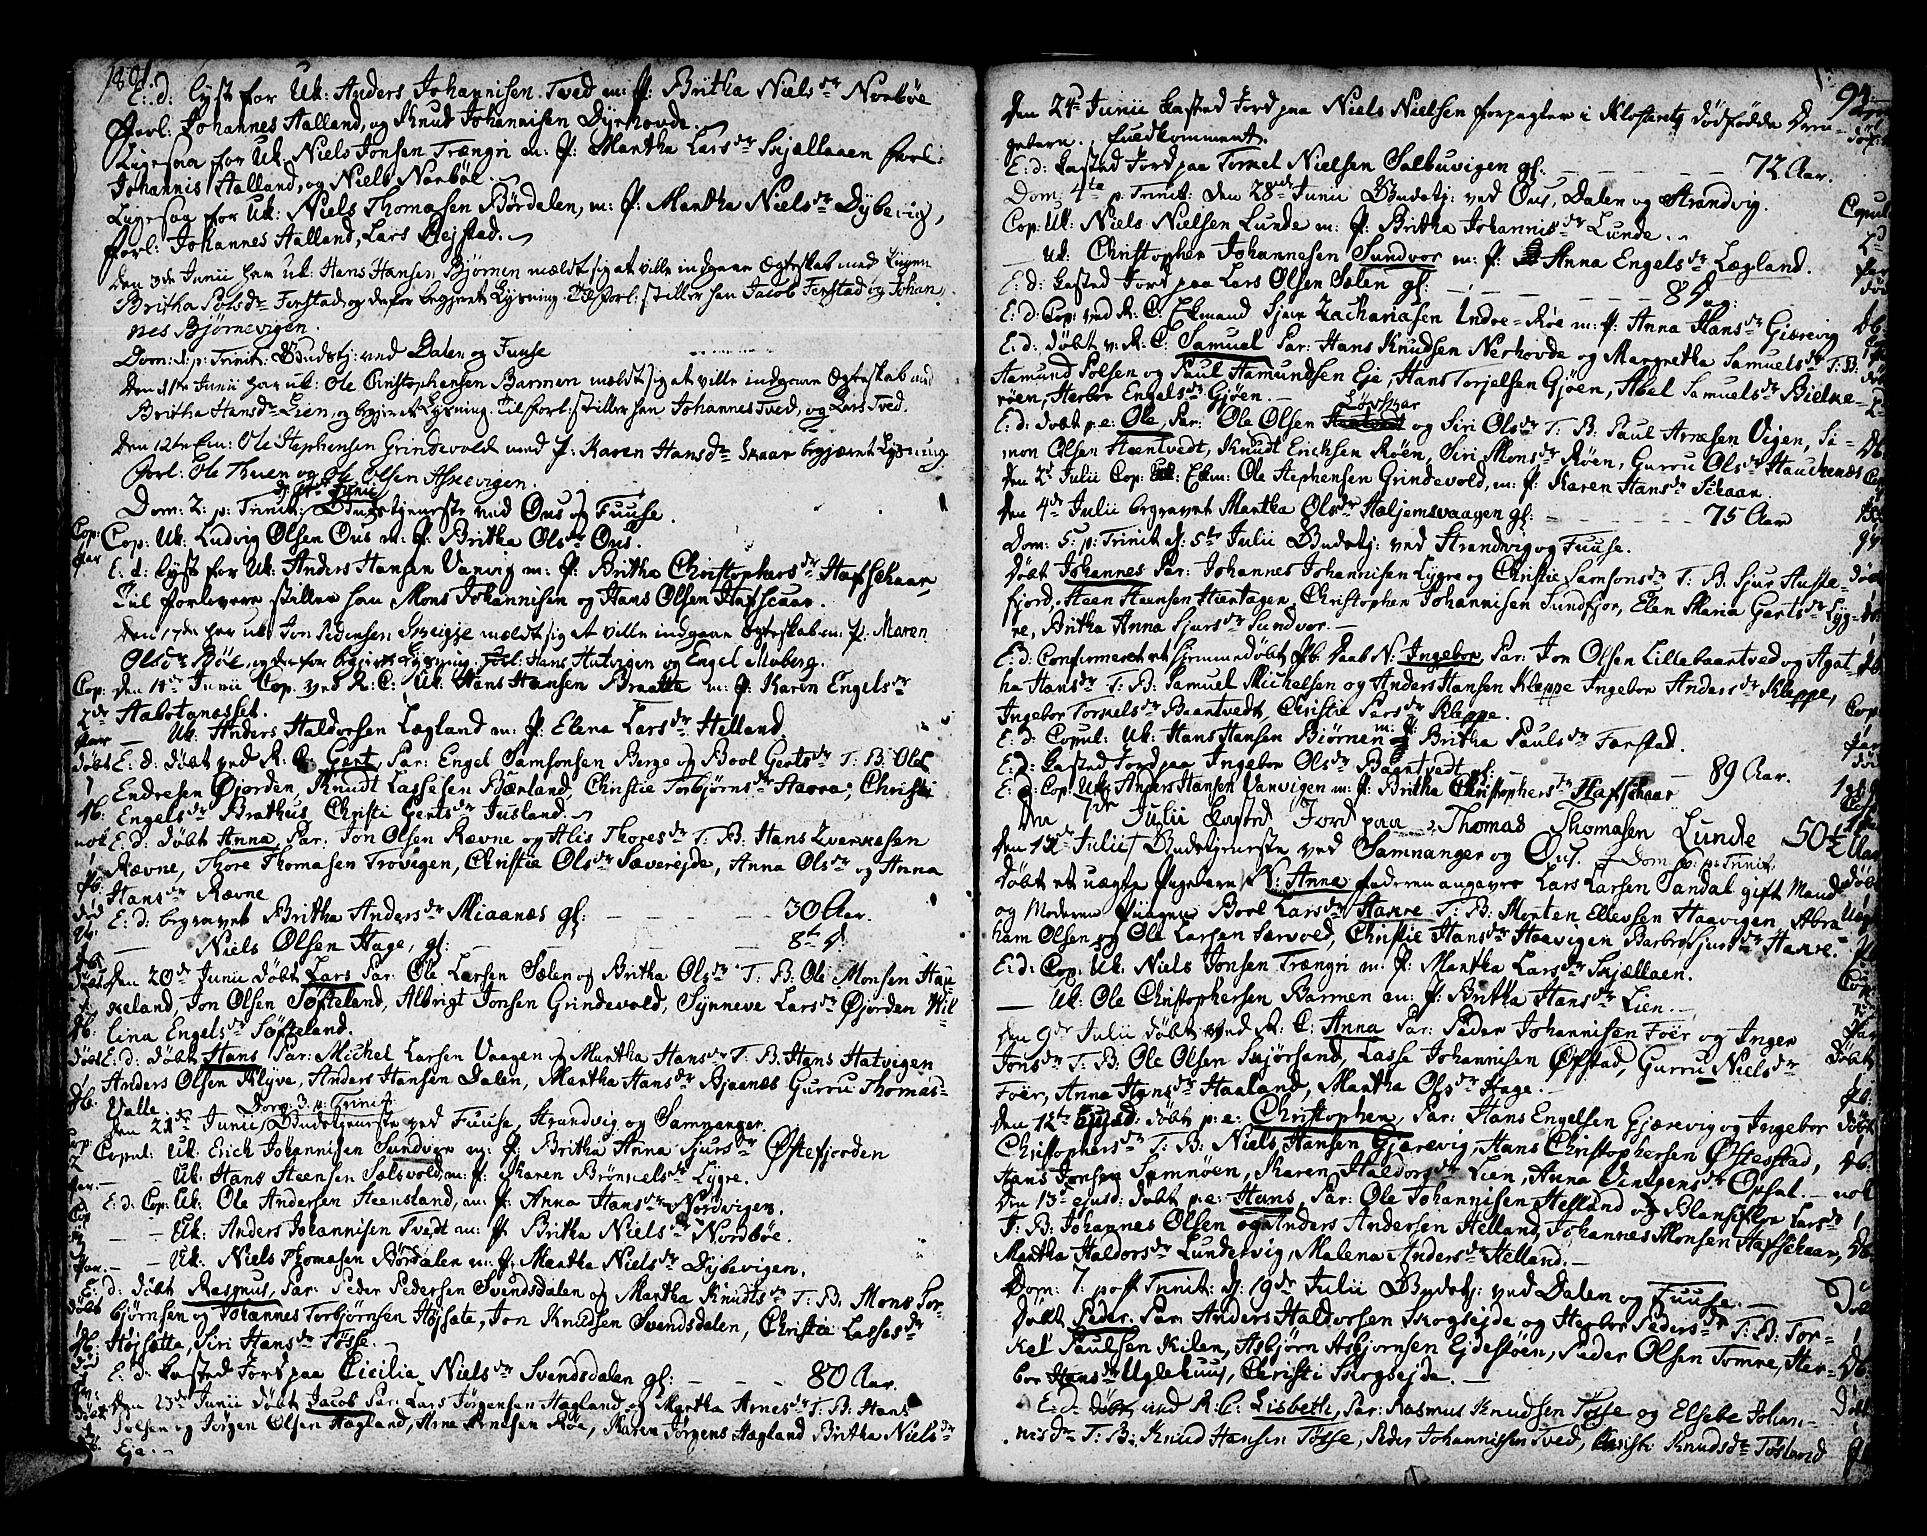 1801.
E: d: lyst for Uk: Anders Johannisen Tved m: P: Britha Niels dr Norbøe
forl: Johannes Halland, og Knud Johannisen Dyrhovde.
Ligesaa for Uk: Niels Jonsen Trængri m: P: Martha Lars dr Skjællaaen forl:
Johannis Halland, og Niels Norbøe.
Ligesaa for Uk: Niels Thomasen Bördalen, m: P: Martha Niels dr Dybevig,
forl: Johannes Halland, Lars Rejstad.
Den 3de Junii har Uk: Hans Hansen Bjørnen mældt sig at ville indgaae Ægteskab med Pigen
Britha Pols dr Ferstad, og derfor begjært Lysning. Til forl: stiller han Jacob Ferstad og Johan
nes Bjørnevigen.
Dom: 1: p: Trinit: Gudstj: ved Dalen og Fuuse
Den 11te Junii har uk: Ole Christophersen Barmen mældt sig at ville indgaae Ægteskab med
Britha Hans dr Lien, og begjært Lysning. Til forl: stiller han Johannes Tved, og Lars Tved.
Den 12te Em: Ole Stephensen Grindevold med P: Karen Hans dr Skaar begjæret Lysning
forl: Ole Thuen og Ole Olsen Askevigen.
d: 14de Junii
Dom: 2: p: Trinit: Gudstjeneste ved Ous og Fuuse.
Cop: Uk: Ludvig Olsen Ous m: P: Britha Ols dr Ous.
E: d: lyst for Uk: Anders Hansen Vanvig m: P: Britha Christophers dr Hafschaar,
Til forlovere stiller han Mons Johannisen og Hans Olsen Hafscaar.
Den 17de har uk: Jon Pedersen Skeigje mældt sig at ville indgaae Ægteskab m: P: Maren
Ols dr Bøe, og derfor begjert Lysning. Forl: Hans Hatvigen og Engel Moberg.
Den 18de Junii Cop. ved R: C: Uk: Hans Hansen Braatte m: P: Karen Engels dr
Aabotanesset.
— Uk: Anders Haldorsen Lægland m: P: Elena Lars dr Helland.
E: d: döbt ved R: C: Gert, Par: Engel Samsonsen Berge og Bool Gerts dr T: B: Ole
Endresen Øjorden, Knudt Lassesen Bærland, Christie Torbjørns dr Havra, Christi
Engels dr Brathuus Christi Gerts dr Jusland.
E: d: döbt Anna, Par: Jon Olsen Rævne og Alis Thores dr T: B: Hans Zverkesen
Rævne, Thore Thomasen Trovigen, Christie Ols dr Sæverejde, Anna Ols dr og Anna
Hans dr Rævne
E: d: begravet Britha Anders dr Miaanes gl: — — — — 30 Aar.
— Niels Olsen Hage, gl: — — — — 8te D.
Den 20de Junii döbt Lars Par: Ole Larsen Sælen og Britha Ols dr T: B: Ole Monsen Hau
keland, Jon Olsen Søfteland, Albrigt Jonsen Grindevold, Synneve Lars dr Øjorden Wil-
lina Engels dr Søfteland.
E: d: döbt Hans Par: Michel Larsen Vaagen og Martha Hans dr T: B: Hans Hatvigen
Anders Olsen Klyve, Anders Hansen Dalen, Martha Hans dr Bjaanes Gurru Thomas-
Valle. Dom: 3. p: Trinit:
Den 21de Junii Gudstjeneste ved Fuuse, Strandvig og Samnanger.
Copul: Uk: Erich Johannisen Sundvor m: P: Britha Anna Sjurs dr Østefjorden
— Uk: Hans Steensen Salsvold, m: P: Karen Brönnels dr Lygre.
E: d: Cop: Uk: Ole Andersen Steensland, m: P: Anna Hans dr Nordvigen.
— — Uk: Anders Johannisen Tvedt m: P: Britha Niels dr Nordbøe.
— — Uk: Niels Thomasen Bördalen m: P: Martha Niels dr Dybevigen.
E: d: döbt Rasmus, Par: Peder Pedersen Svendsdalen og Martha Knudts dr T: B: Mons Tor-
björnsen og Johannes Torbjörnsen Højsæte, Jon Knudsen Svendsdalen, Christie Lasses dr
Højsætte, Siri Hans dr Tösse.
E: d: kasted Jord paa Cicilia Niels dr Svendsdalen gl: — — — 80 Aar.
Den 23de Junii döbt Jacob Par: Lars Jørgensen Hagland og Martha Arnes dr T: B: Hans
Polsen og Jørgen Olsen Hagland, Arne Arnesen Röe, Karen Jörgens Hagland Britha Niels dr
Eje. —
94
Den 24de Junii kasted Jord paa Niels Nielsen forpagter i Klosterets dödfödde Dren-
gebarn. fuldkomment.
E: d: kasted Jord paa Tormel Nielsen Salbuvigen gl: — — — — 72 Aar.
Dom: 4ta p: Trinit: Den 28de Junii Gudstj: ved Ous, Dalen og Strandvig.
Cop: Uk: Niels Nielsen Lunde m: P: Britha Johannis dr Lunde.
— Uk: Christopher Johannesen Sundvor m: P: Anna Engels dr Lægland.
E: d: kasted Jord paa Lars Olsen Sælen gl: — — — — 8 Dag:
E: d: Cop: ved R: C: Ekmand Sjur Zachariasen Indre-Røe m: P: Anna Hans dr Gierevig
E: d: döbt v: R: C: Samuel Par: Hans Knudsen Nerhovde og Margretha Samuels dr T: B:
Aamund Polsen og Paul Aamundsen Eje, Hans Torjelsen Gjöen, Abel Samuels dr Bielke-
röen, Herbor Engels dr Gjöen. —
E: d: döbt p: e: Ole, Par: Ole Olsen Lövskar og Siri Ols dr T: B: Paul Arnesen Vigen, Si-
mon Olsen Heentvedt, Knudt Ericksen Röen, Siri Mons dr Röen, Gurru Ols dr Hauckenæs
Den 2de Julii Cop: Ekm: Ole Stephensen Grindevold, m: P: Karen Hans dr Schaar.
Den 4de Julii begravet Martha Ols dr Haljemsvaagen gl: — — — — 75 Aar
Dom: 5: p: Trinit d: 5te Julii Gudstj: ved Strandvig og Fuuse.
Döbt Johannes Par: Johannes Johannisen Lygre og Christie Samsons dr T: B. Sjur Huste-
fjord, Steen Steensen Hiertagen, Christopher Johannisen Sundfjor, Elen Maria Gerts dr Lyg-
re, Britha Anna Sjurs dr Sundvor. —
E: d: Confirmeret et hjemmedöbt Pb: Daab N: Ingebor, Par: Jon Olsen Lillebaantved og Agat
ha Hans dr T: B: Samuel Michelsen og Anders Hansen Kleppe Ingebor Anders dr Kleppe,
Ingebor Tormels dr Baantvedt, Christie Pers dr Kleppe.
E: d: Copul: Uk: Hans Hansen Biørnen m: P: Britha Pauls dr Færstad.
E: d: kasted Jord paa Ingebor Ols dr Baantvedt gl: — — 89 Aar.
E: d: Cop: Uk: Anders Hansen Vanvigen m: P: Britha Christophers dr Hafschaar
Den 7de Julii kasted Jord paa Thomas Thomasen Lunde 50 1/2 Aar
Den 12de Julii Gudstjeneste ved Samnanger og Ous. Dom: 6: p: Trinit.
Döbt et uægte Pigebarn N: Anna faderen angavs Lars Larsen Sandal gift Mand
og Moderen Pigen Boel Lars dr Havre T: B: Morten Ellevsen Haavigen, Abra
ham Olsen og Ole Larsen Sævold, Christie Hans dr Haavigen Barbro Sjurs dr Havre.
E: d: Cop: Uk: Niels Jonsen Trængri m: P: Martha Lars dr Skjællaen.
— Uk: Ole Christophersen Barmen m: P: Britha Hans dr Lien. —
Den 9de Julii döbt ved R: C: Anna Par: Peder Johannisen Foer og Inger
Jons dr T: B: Ole Olsen Skjörsand, Lasse Johannisen Øfstad, Gurru Niels dr
Foer, Anna Hans dr Haaland, Martha Ols dr Hage.
Den 12te Ejusd: döbt p: e: Christopher, Par: Hans Engelsen Gjærevig og Ingebor
Christophers dr T: B: Niels Hansen Gjærevig, Hans Christophersen Østestad,
Hans Jonsen Samnöen, Karen Haldors dr Lien, Anna Vintens dr Opsal. —
Den 13de ejusd: döbt p: e: Hans, Par: Ole Johannisen Helland og Blanseflor Lars dr
T: B: Johannes Olsen og Anders Andersen Helland, Johannes Monsen Hafschaar,
Martha Haldors dr Lundervig, Malena Anders dr Helland. —
Dom: 7. post Trinit: d: 19de Julii Gudstj: ved Dalen og Fuuse. —
Döbt Peder, Par: Anders Haldorsen Skogsejde og Herbor Peders dr T: B: Tor-
kel Paulsen Kilen, Asbjörn Asbjornsen Ejdestöen, Peder Olsen Tomre, Her-
bor Hans dr Uglehuus, Christi Skogsejde. —
E: d: döbt ved R: C. Lisbeth, Par: Rasmus Knudsen Tösse og Elsebe Johan-
nis dr T: B: Knud Hansen Tösse, Peder Johannissen Tved, Christi Knuds dr Tösland